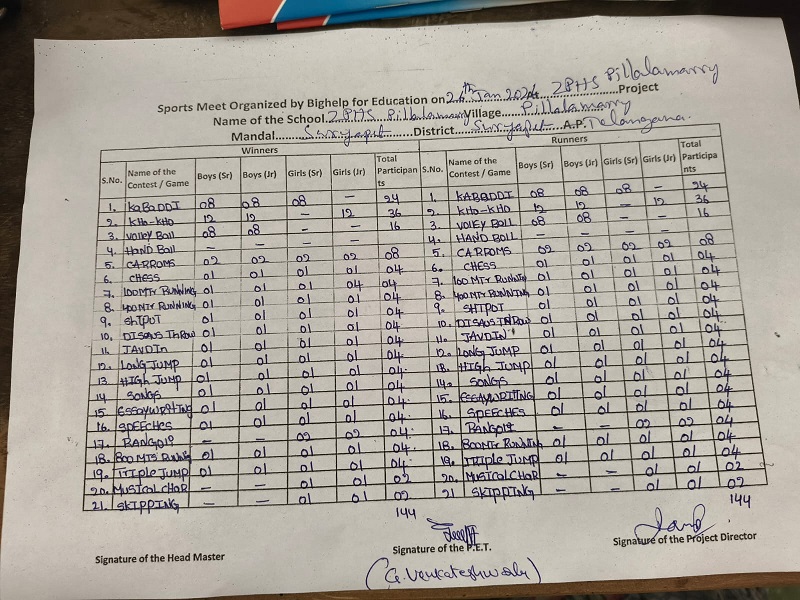 Sports Meet Organized by Bighelp for Education on 26th Jan 2024 At ZPHS Pillalamarry Project
Name of the School ZPHS Pillalamarry Village Pillalamarry
Mandal Suryapet District Suryapet A.P. Telanagana.
Winners Runners
S.No. Name of the Contest / Game Boys (Sr) Boys (Jr) Girls (Sr) Girls (Jr) Total Participants S.No. Name of the Contest / Game Boys (Sr) Boys (Jr) Girls (Sr) Girls (Jr) Total Participants
1. KABADDI 08 08 08 — 24 1. KABADDI 08 08 08 — 24
2. KHO-KHO 12 12 — 12 36 2. KHO-KHO 12 12 — 12 36
3. VOllEY Ball 08 08 — — 16 3. VOLEY BOLL 08 08 — — 16
4. HAND Ball — — — — 4. HAND BOLL — — — —
5. CARROMS 02 02 02 02 08 5. CARROMS 02 02 02 02 08
6. CHESS 01 01 01 01 04 6. CHESS 01 01 01 01 04
7. 100MTr RUNNING 01 01 04 04 04 7. 100 MTr RUNNIN 01 01 01 01 04
8. 400MTr RUNNING 01 01 01 01 04 8. 400MTr RUNNING 01 01 01 01 04
9. SHTPOT 01 01 01 01 04 9. SHTPOT 01 01 01 01 04
10. DISCUS THROW 01 01 01 01 04 10. DISCUS THROW 01 01 01 01 04
11. JAVDIn 01 01 01 01 04 11. JAVDIN 01 01 01 01 04
12. LONG JUMP 01 01 01 01 04 12. LONG JUMP 01 01 01 01 04
13. HIGH JUMP 01 01 01 01 04 13. HIGH JUMP 01 01 01 01 04
14. SONGS 01 01 01 01 04 14. SONGS 01 01 01 01 04
15. ESSAYWRITING 01 01 01 01 04 15. ESSAYWRITING 01 01 01 01 04
16. SPEECHES 01 01 01 01 04 16. SPEECHES 01 01 01 01 04
17. RANGOli — — 02 02 04 17. RANGOli — — 02 02 04
18. 800 MTS RUNNING 01 01 01 01 04 18. 800MTr RUNNING 01 01 01 01 04
19. TRIPLE JUMP 01 01 01 01 04 19. TRIPLE JUMP 01 01 01 01 04
20. MUSICOL CHAR — — 01 01 02 20. MUSICAL CHAR — — 01 01 02
21. SKIPPING — — 01 01 02 21 SKIPPING — — 01 01 02
144 144
Signature of the Head Master Signature of the P.E.T. Signature of the Project Director